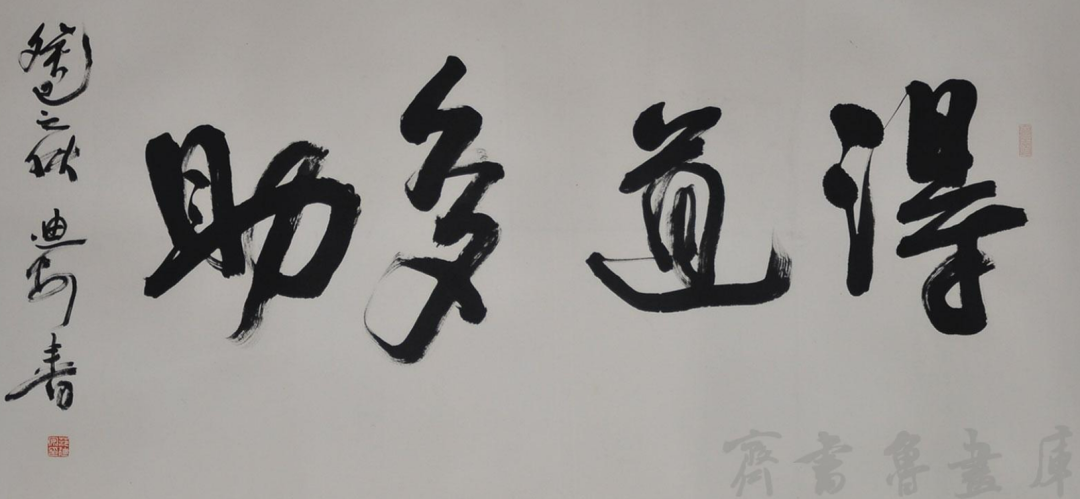 得道多助
癸巳之秋 迪安書
齊魯書畫庫